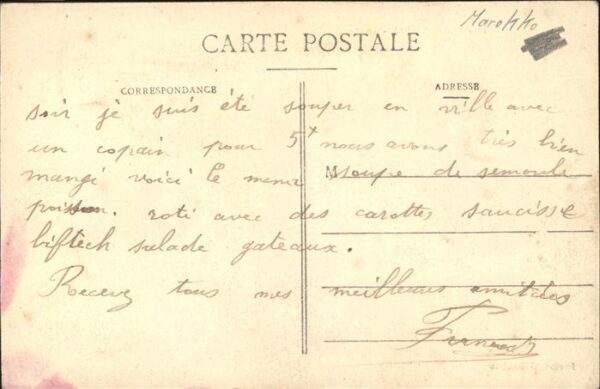 Marokko
CARTE POSTALE
CORRESPONDANCE
ADRESSE
soir je suis été souper en ville avec
un copain pour 5 nous avons très bien
M
mangé voici le menu soupe de semoule
poisson. roti avec des carottes saucisse
biftech salade gateaux.
Recevez tous mes meilleures amitiées